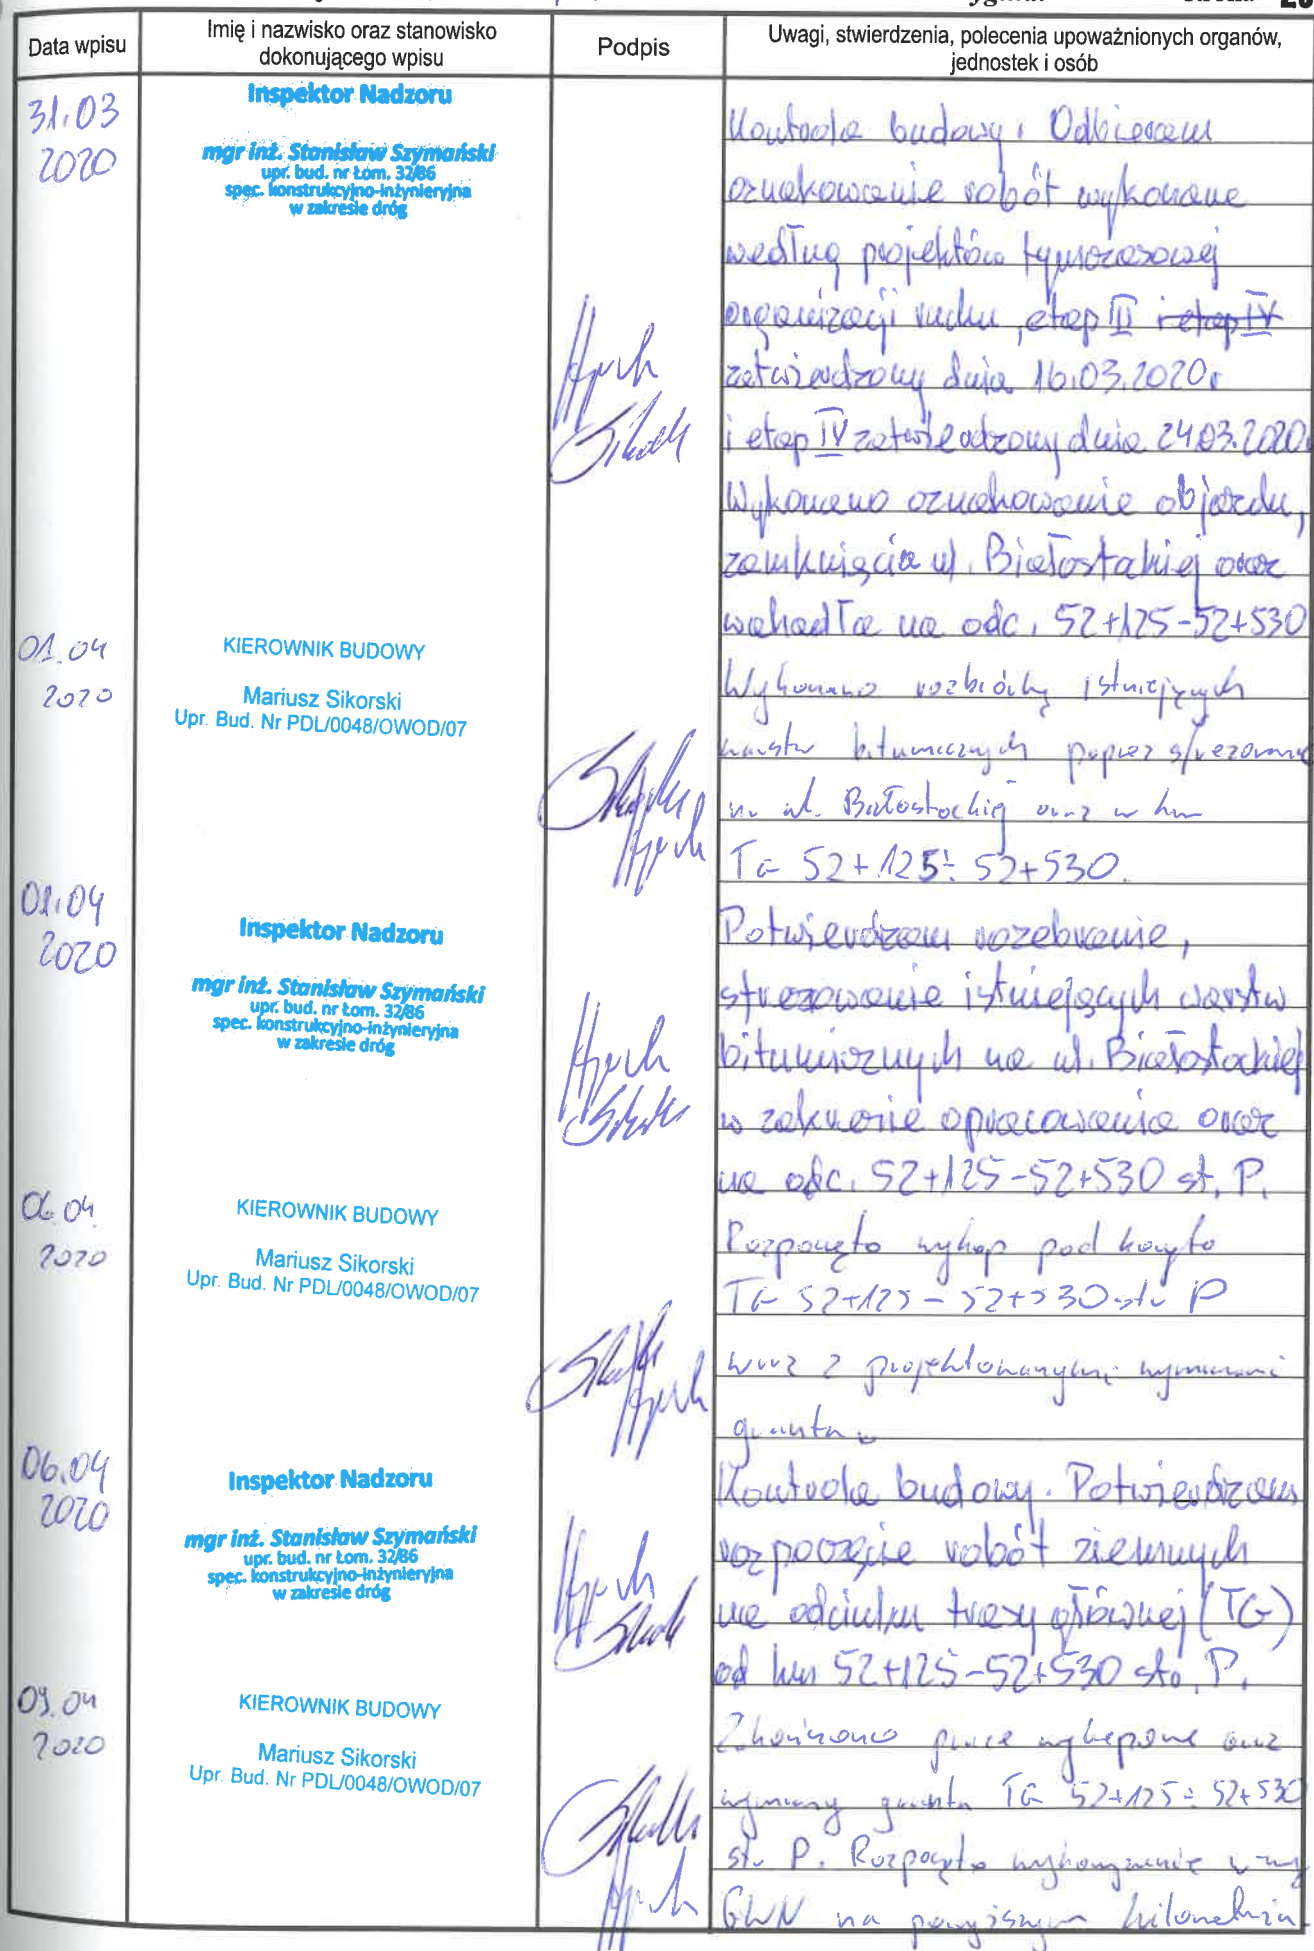 Strona 23
Data wpisu
Imię i nazwisko oraz stanowisko
dokonującego wpisu
Podpis
Uwagi, stwierdzenia, polecenia upoważnionych organów,
jednostek i osób
31.03
2020
Inspektor Nadzoru
mgr inż. Stanisław Szymański
upr. bud. nr Łom. 32/86
spec. konstrukcyjno-inżynieryjna
w zakresie dróg
Kontrola budowy. Odbieram
oznakowanie robót wykonane
według projektów tymczasowej
organizacji ruchu, etap II i etap IV
zatwierdzony dnia 16.03.2020r
i etap IV zatwierdzony dnia 24.03.2020
Wykonano oznakowanie objazdu,
zamknięcia ul. Białostockiej oraz
wahadła na odc. 52+125-52+530
01.04
2020
KIEROWNIK BUDOWY
Mariusz Sikorski
Upr. Bud. Nr PDL/0048/OWOD/07
Wykonano rozbiórkę istniejących
warstw bitumicznych poprzez sfrezowanie
na ul. Białostockiej oraz w km
TG 52+125÷52+530.
01.04
2020
Inspektor Nadzoru
mgr inż. Stanisław Szymański
upr. bud. nr Łom. 32/86
spec. konstrukcyjno-inżynieryjna
w zakresie dróg
Potwierdzam rozebranie,
sfrezowanie istniejących warstw
bitumicznych na ul. Białostockiej
w zakresie opracowania oraz
na odc. 52+125-52+530 st. P.
06.04.
2020
KIEROWNIK BUDOWY
Mariusz Sikorski
Upr. Bud. Nr PDL/0048/OWOD/07
Rozpoczęto wykop pod koryto
TG 52+125 - 52+530 str P
wraz z projektowanymi wymianami
gruntu.
06.04
2020
Inspektor Nadzoru
mgr inż. Stanisław Szymański
upr. bud. nr Łom. 32/86
spec. konstrukcyjno-inżynieryjna
w zakresie dróg
Kontrola budowy. Potwierdzam
rozpoczęcie robót ziemnych
na odcinku trasy głównej (TG)
od km 52+125-52+530 str. P.
09.04
2020
KIEROWNIK BUDOWY
Mariusz Sikorski
Upr. Bud. Nr PDL/0048/OWOD/07
Zakończono prace wykopowe oraz
wymiany gruntu TG 52+125÷52+530
str P. Rozpoczęto wykonywanie
GWN na powyższym kilometrażu